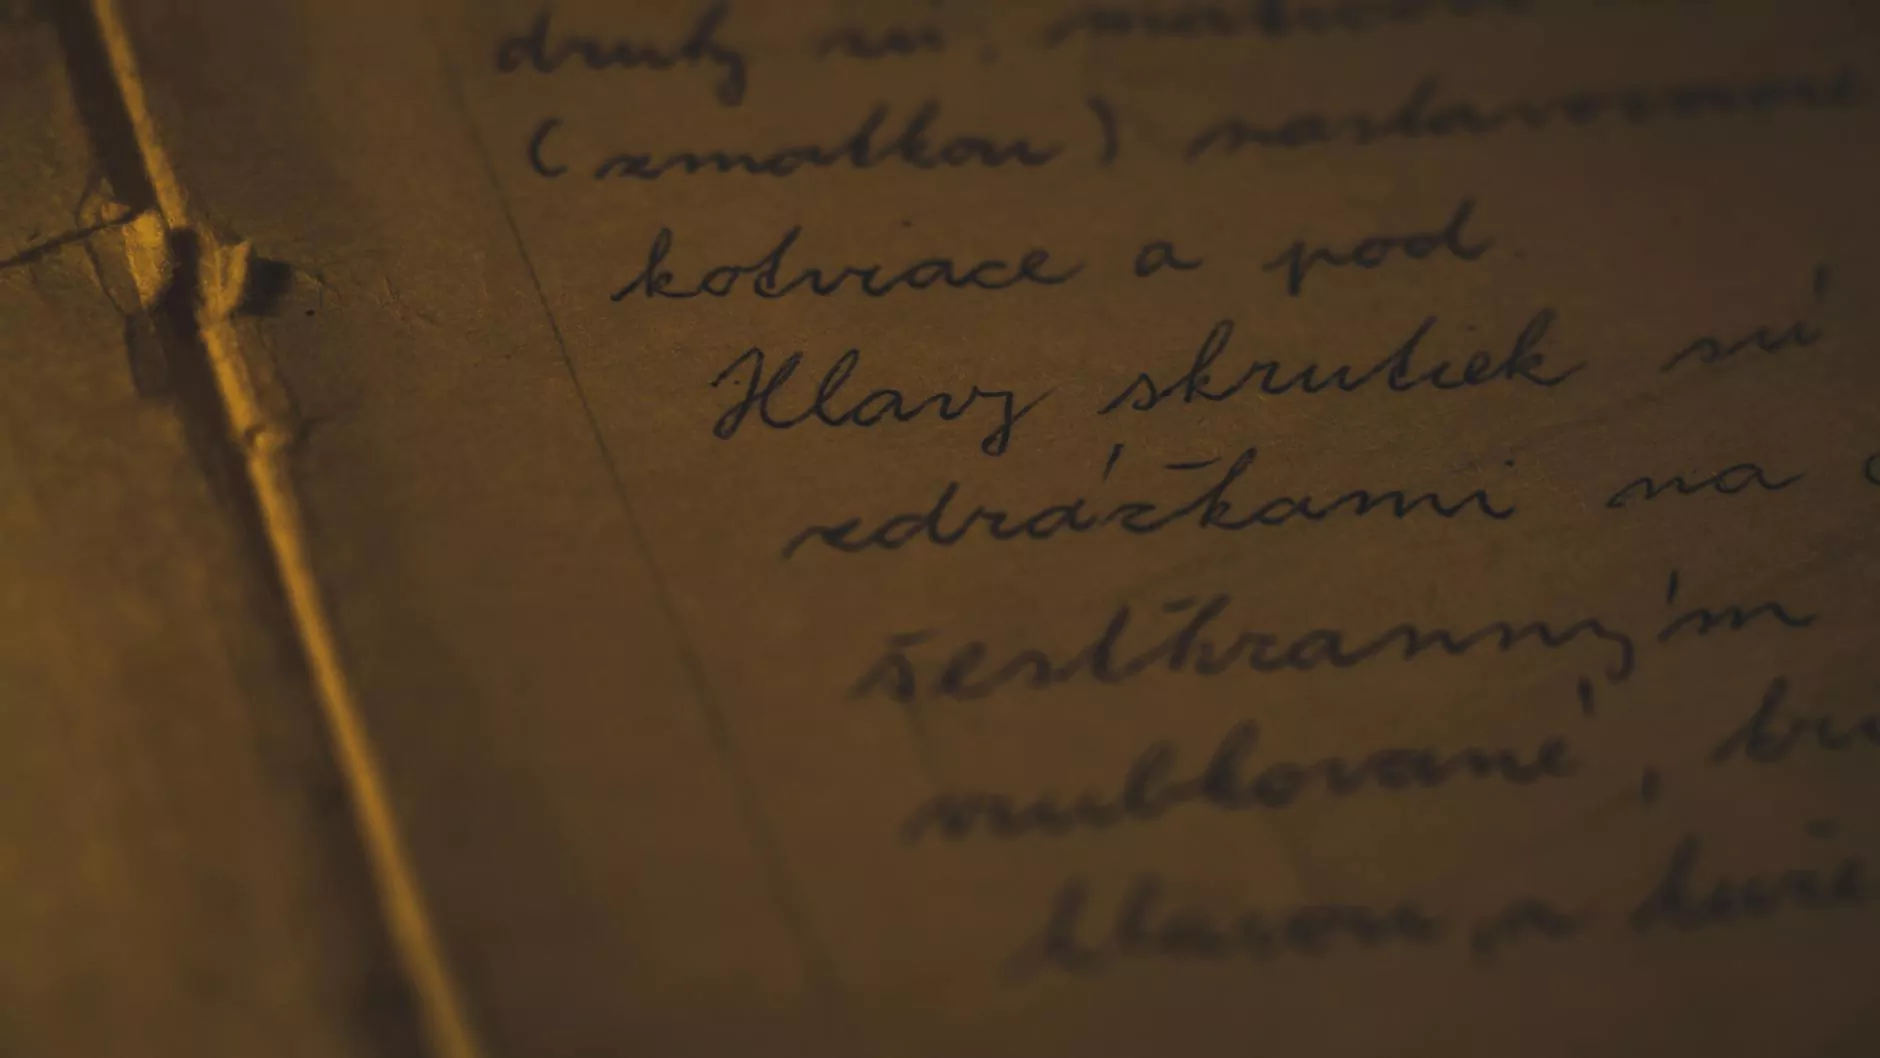 druhy sú,
(zmatkou)
kotviace a pod
Hlavy skrutiek sú
zdrážkami na
šesťhranným
vrubkované,
hlavou, s